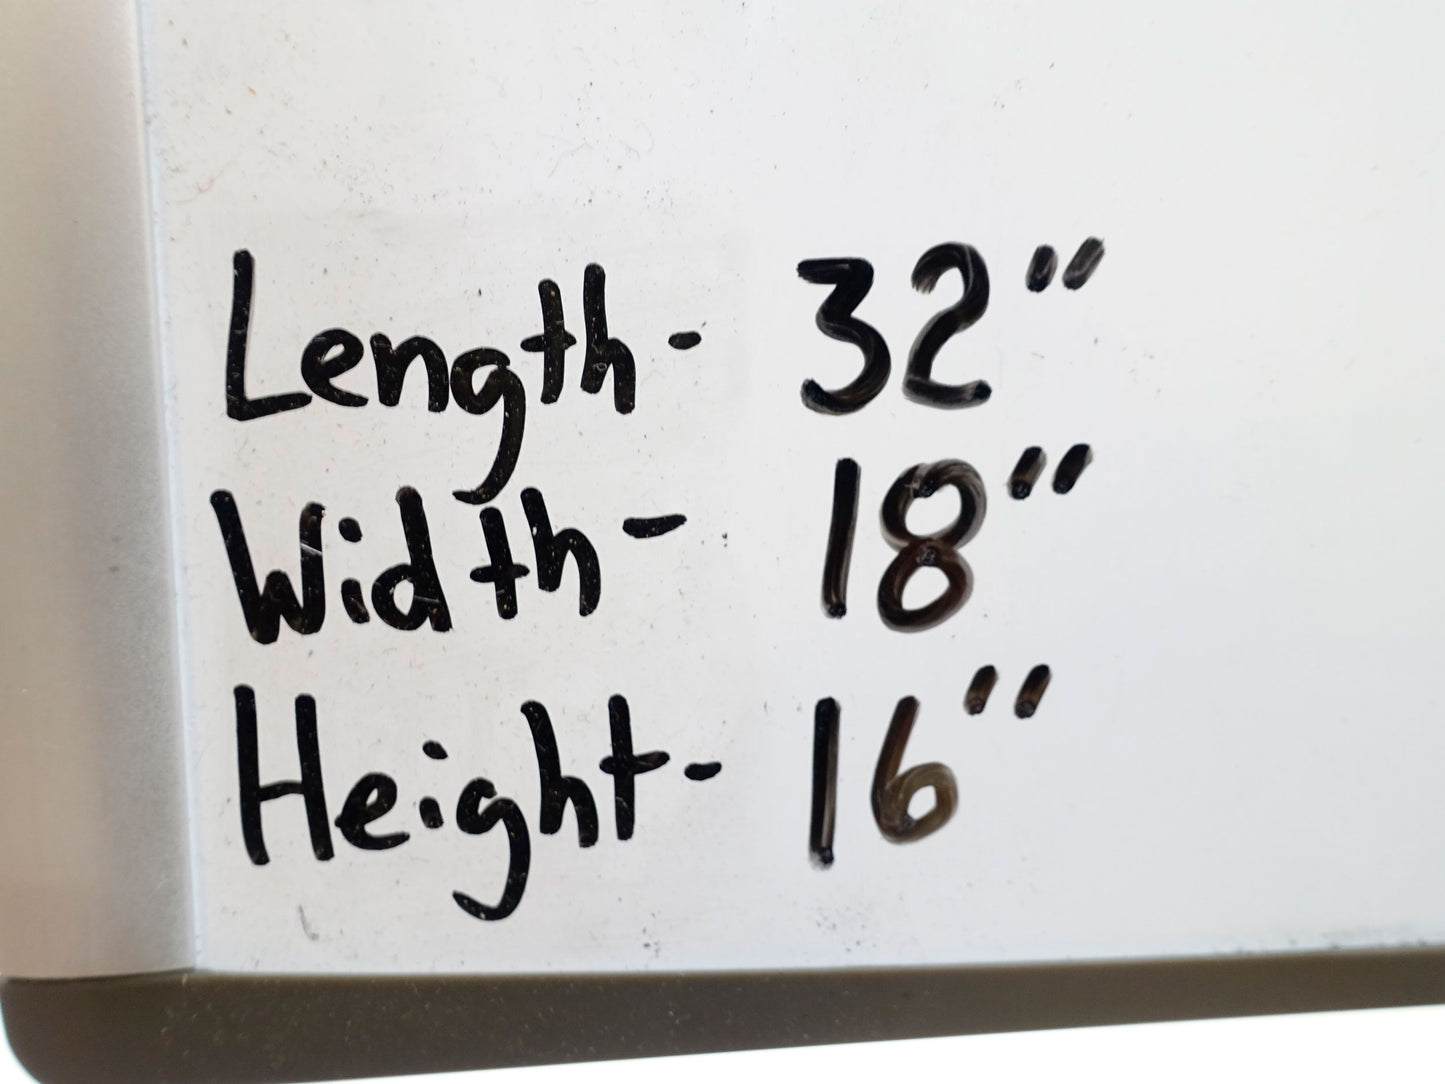 Length- 32"
Width- 18"
Height- 16"